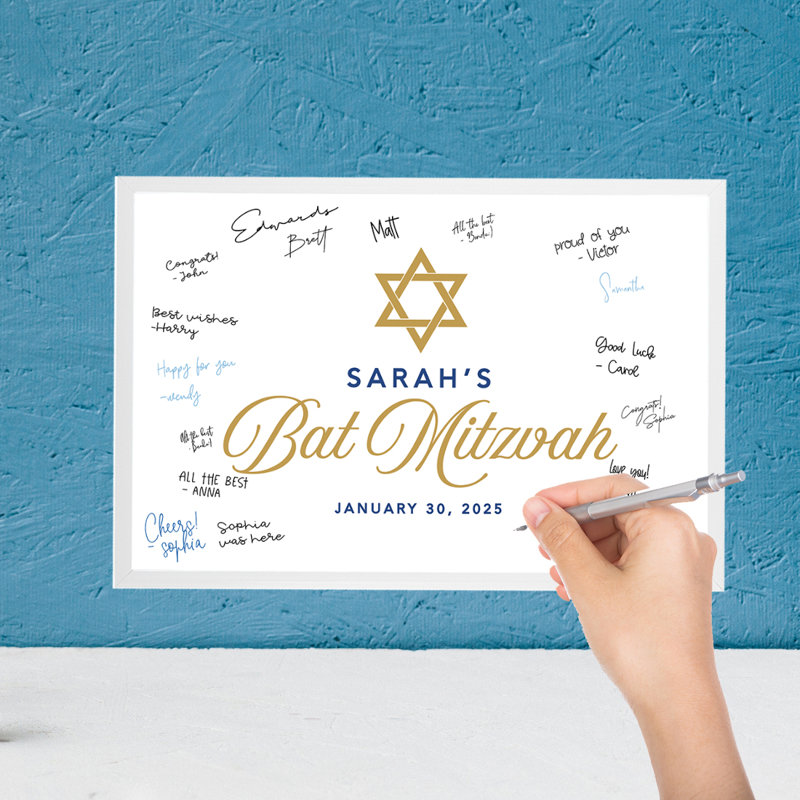 Edwards
Brett
Matt
All the best
Congrats!
- John
proud of you
- Victor
Samantha
Best wishes
-Harry
Good Luck
- Carol
Happy for you
-wendy
SARAH'S
Bat Mitzvah
Congrats!
Sophia
All the best
love you!
ALL THE BEST
- ANNA
JANUARY 30, 2025
Cheers!
- sophia
Sophia
was here